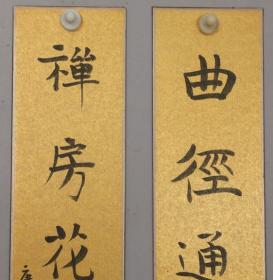 曲徑通
禪房花